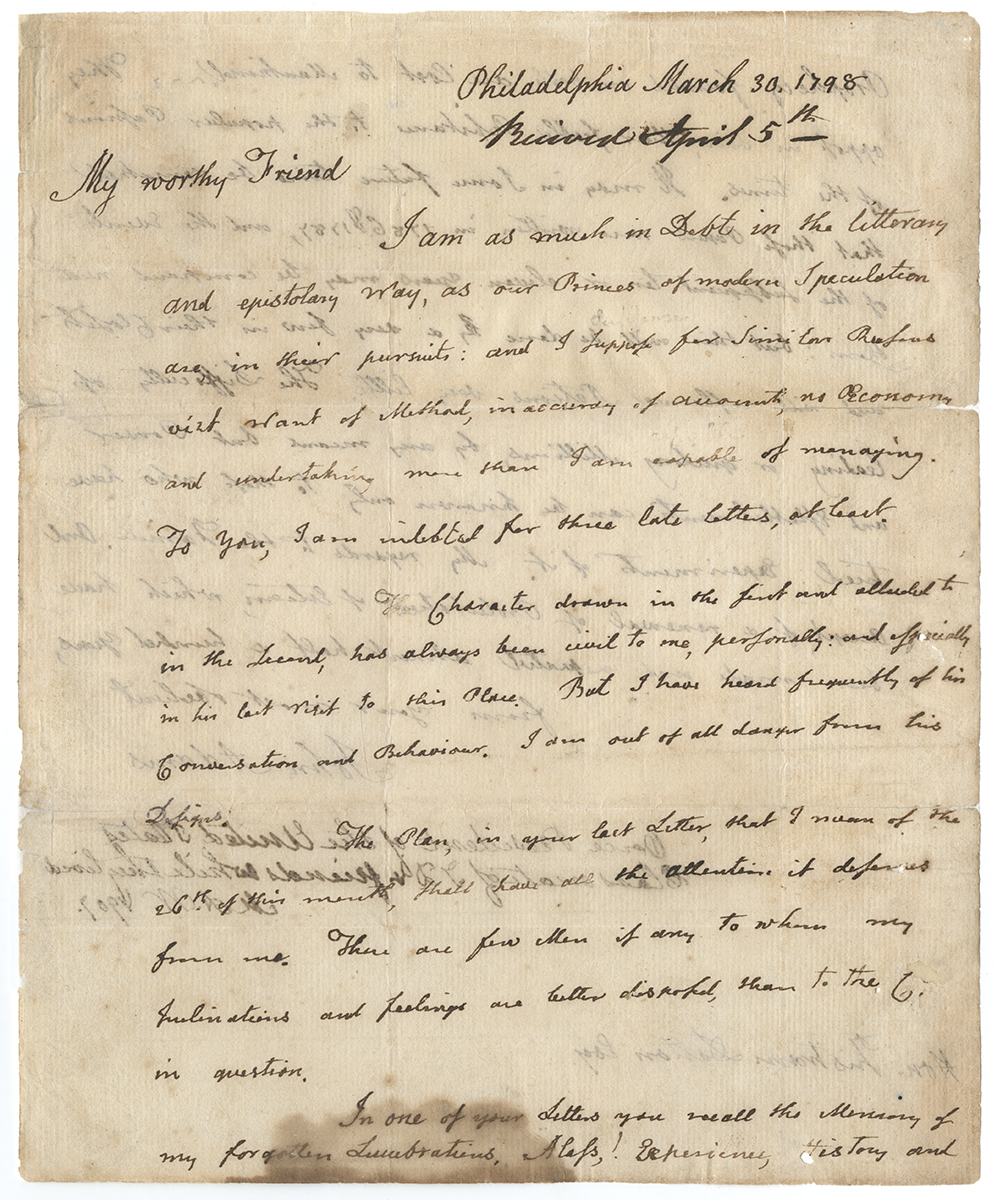 Philadelphia March 30. 1798
Recieved April 5th
My worthy Friend
I am as much in Debt in the litterary
and epistolary Way, as our Princes of modern Speculation
are in their pursuits: and I suppose for Similar Reasons
vizt Want of Method, inaccuracy of accounts, no Œconomy
and undertaking more than I am capable of managing.
To You, I am indebted for three late letters, at least.
The Character drawn in the first and alluded to
in the Second, has always been civil to me, personally: and especially
in his last visit to this Place. But I have heard frequently of his
Conversation and Behaviour. I am out of all danger from his
Designs.
The Plan, in your last Letter, that I mean of the
26th of this month, shall have all the attention it deserves
from me. There are few Men if any to whom my
Inclinations and feelings are better disposed, than to the C.
in question.
In one of your Letters you recall the Memory of
my forgotten Lucubrations. Alass,! Experience, History and